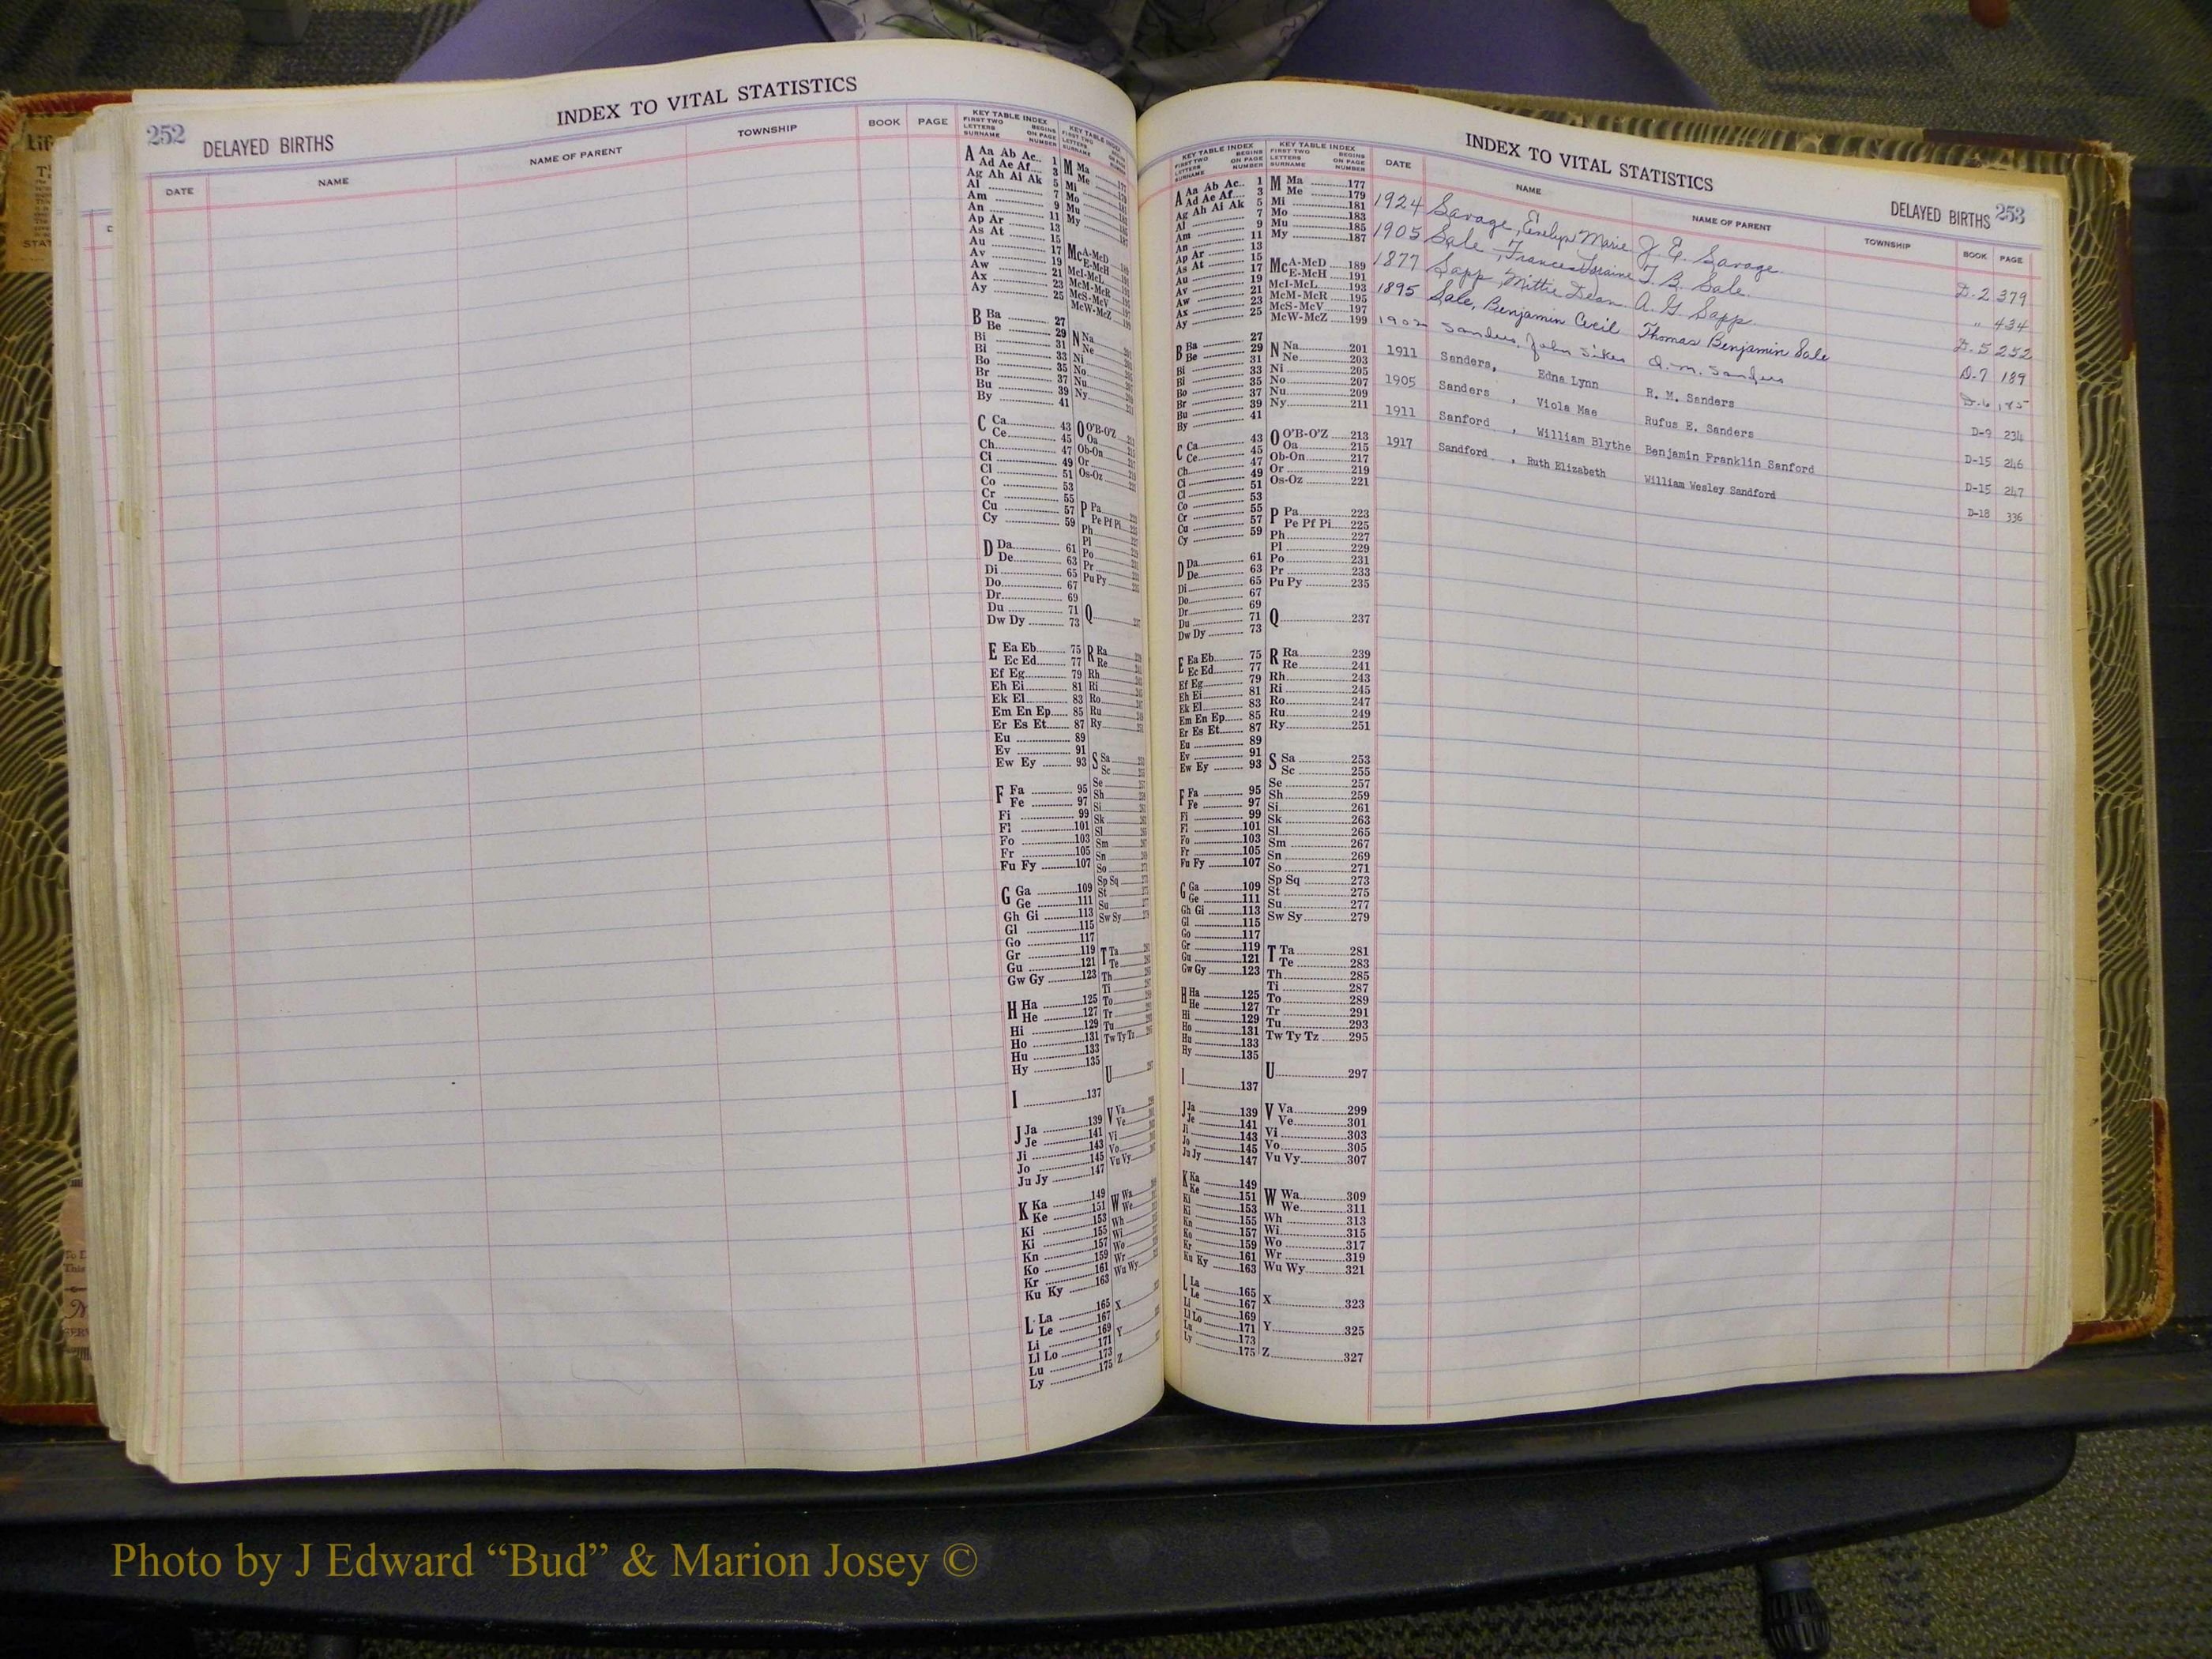 252
DELAYED BIRTHS
INDEX TO VITAL STATISTICS
DATE NAME NAME OF PARENT TOWNSHIP BOOK PAGE
KEY TABLE INDEX
FIRST TWO LETTERS SURNAME BEGINS ON PAGE NUMBER
A Aa Ab Ac 1
Ad Ae Af 3
Ag Ah Ai Ak 5
Al 7
Am 9
An 11
Ap Ar 13
As At 15
Au 17
Av 19
Aw 21
Ax 23
Ay 25
B Ba 27
Be 29
Bi 31
Bl 33
Bo 35
Br 37
Bu 39
By 41
C Ca 43
Ce 45
Ch 47
Ci 49
Cl 51
Co 53
Cr 55
Cu 57
Cy 59
D Da 61
De 63
Di 65
Do 67
Dr 69
Du 71
Dw Dy 73
E Ea Eb 75
Ec Ed 77
Ef Eg 79
Eh Ei 81
Ek El 83
Em En Ep 85
Er Es Et 87
Eu 89
Ev 91
Ew Ey 93
F Fa 95
Fe 97
Fi 99
Fl 101
Fo 103
Fr 105
Fu Fy 107
G Ga 109
Ge 111
Gh Gi 113
Gl 115
Go 117
Gr 119
Gu 121
Gw Gy 123
H Ha 125
He 127
Hi 129
Ho 131
Hu 133
Hy 135
I 137
J Ja 139
Je 141
Ji 143
Jo 145
Ju Jy 147
K Ka 149
Ke 151
Ki 153
Ki 155
Kn 157
Ko 159
Kr 161
Ku Ky 163
L La 165
Le 167
Li 169
Ll Lo 171
Lu 173
Ly 175
INDEX TO VITAL STATISTICS
DELAYED BIRTHS 253
KEY TABLE INDEX
FIRST TWO LETTERS SURNAME BEGINS ON PAGE NUMBER
M Ma 177
Me 179
Mi 181
Mo 183
Mu 185
My 187
Mc A-McD 189
E-McH 191
McI-McL 193
McM-McR 195
McS-McV 197
McW-McZ 199
N Na 201
Ne 203
Ni 205
No 207
Nu 209
Ny 211
O O'B-O'Z 213
Oa 215
Ob-On 217
Or 219
Os-Oz 221
P Pa 223
Pe Pf Pi 225
Ph 227
Pl 229
Po 231
Pr 233
Pu Py 235
Q 237
R Ra 239
Re 241
Rh 243
Ri 245
Ro 247
Ru 249
Ry 251
S Sa 253
Sc 255
Se 257
Sh 259
Si 261
Sk 263
Sl 265
Sm 267
Sn 269
So 271
Sp Sq 273
St 275
Su 277
Sw Sy 279
T Ta 281
Te 283
Th 285
Ti 287
To 289
Tr 291
Tu 293
Tw Ty Tz 295
U 297
V Va 299
Ve 301
Vi 303
Vo 305
Vu Vy 307
W Wa 309
We 311
Wh 313
Wi 315
Wo 317
Wr 319
Wu Wy 321
X 323
Y 325
Z 327
DATE NAME NAME OF PARENT TOWNSHIP BOOK PAGE
1924 Savage, Evelyn Marie J. E. Savage D-2 379
1905 Sale, Frances Loraine T. B. Sale " 434
1877 Sapp, Mittie Dean A. G. Sapp D-5 252
1895 Sale, Benjamin Cecil Thomas Benjamin Sale D-7 189
1902 Sanders, John Sikes Sanders
1911 Sanders, Edna Lynn R. M. Sanders D-9 234
1905 Sanders, Viola Mae Rufus E. Sanders D-15 246
1911 Sanford, William Blythe Benjamin Franklin Sanford D-15 247
1917 Sandford, Ruth Elizabeth William Wesley Sandford D-18 336
Photo by J Edward “Bud” & Marion Josey ©